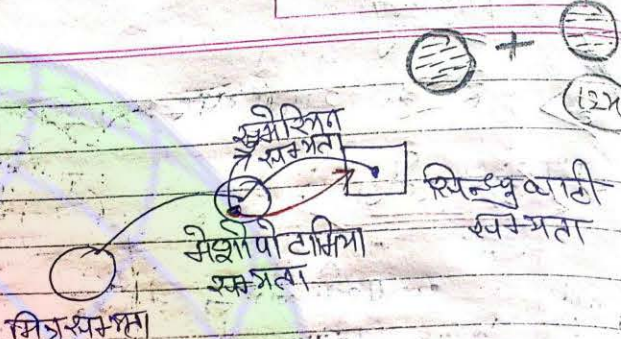 +
सुमेरियन
सभ्यता
सिन्धु घाटी
सभ्यता
मेसोपोटामिया
सभ्यता
मिस्र सभ्यता